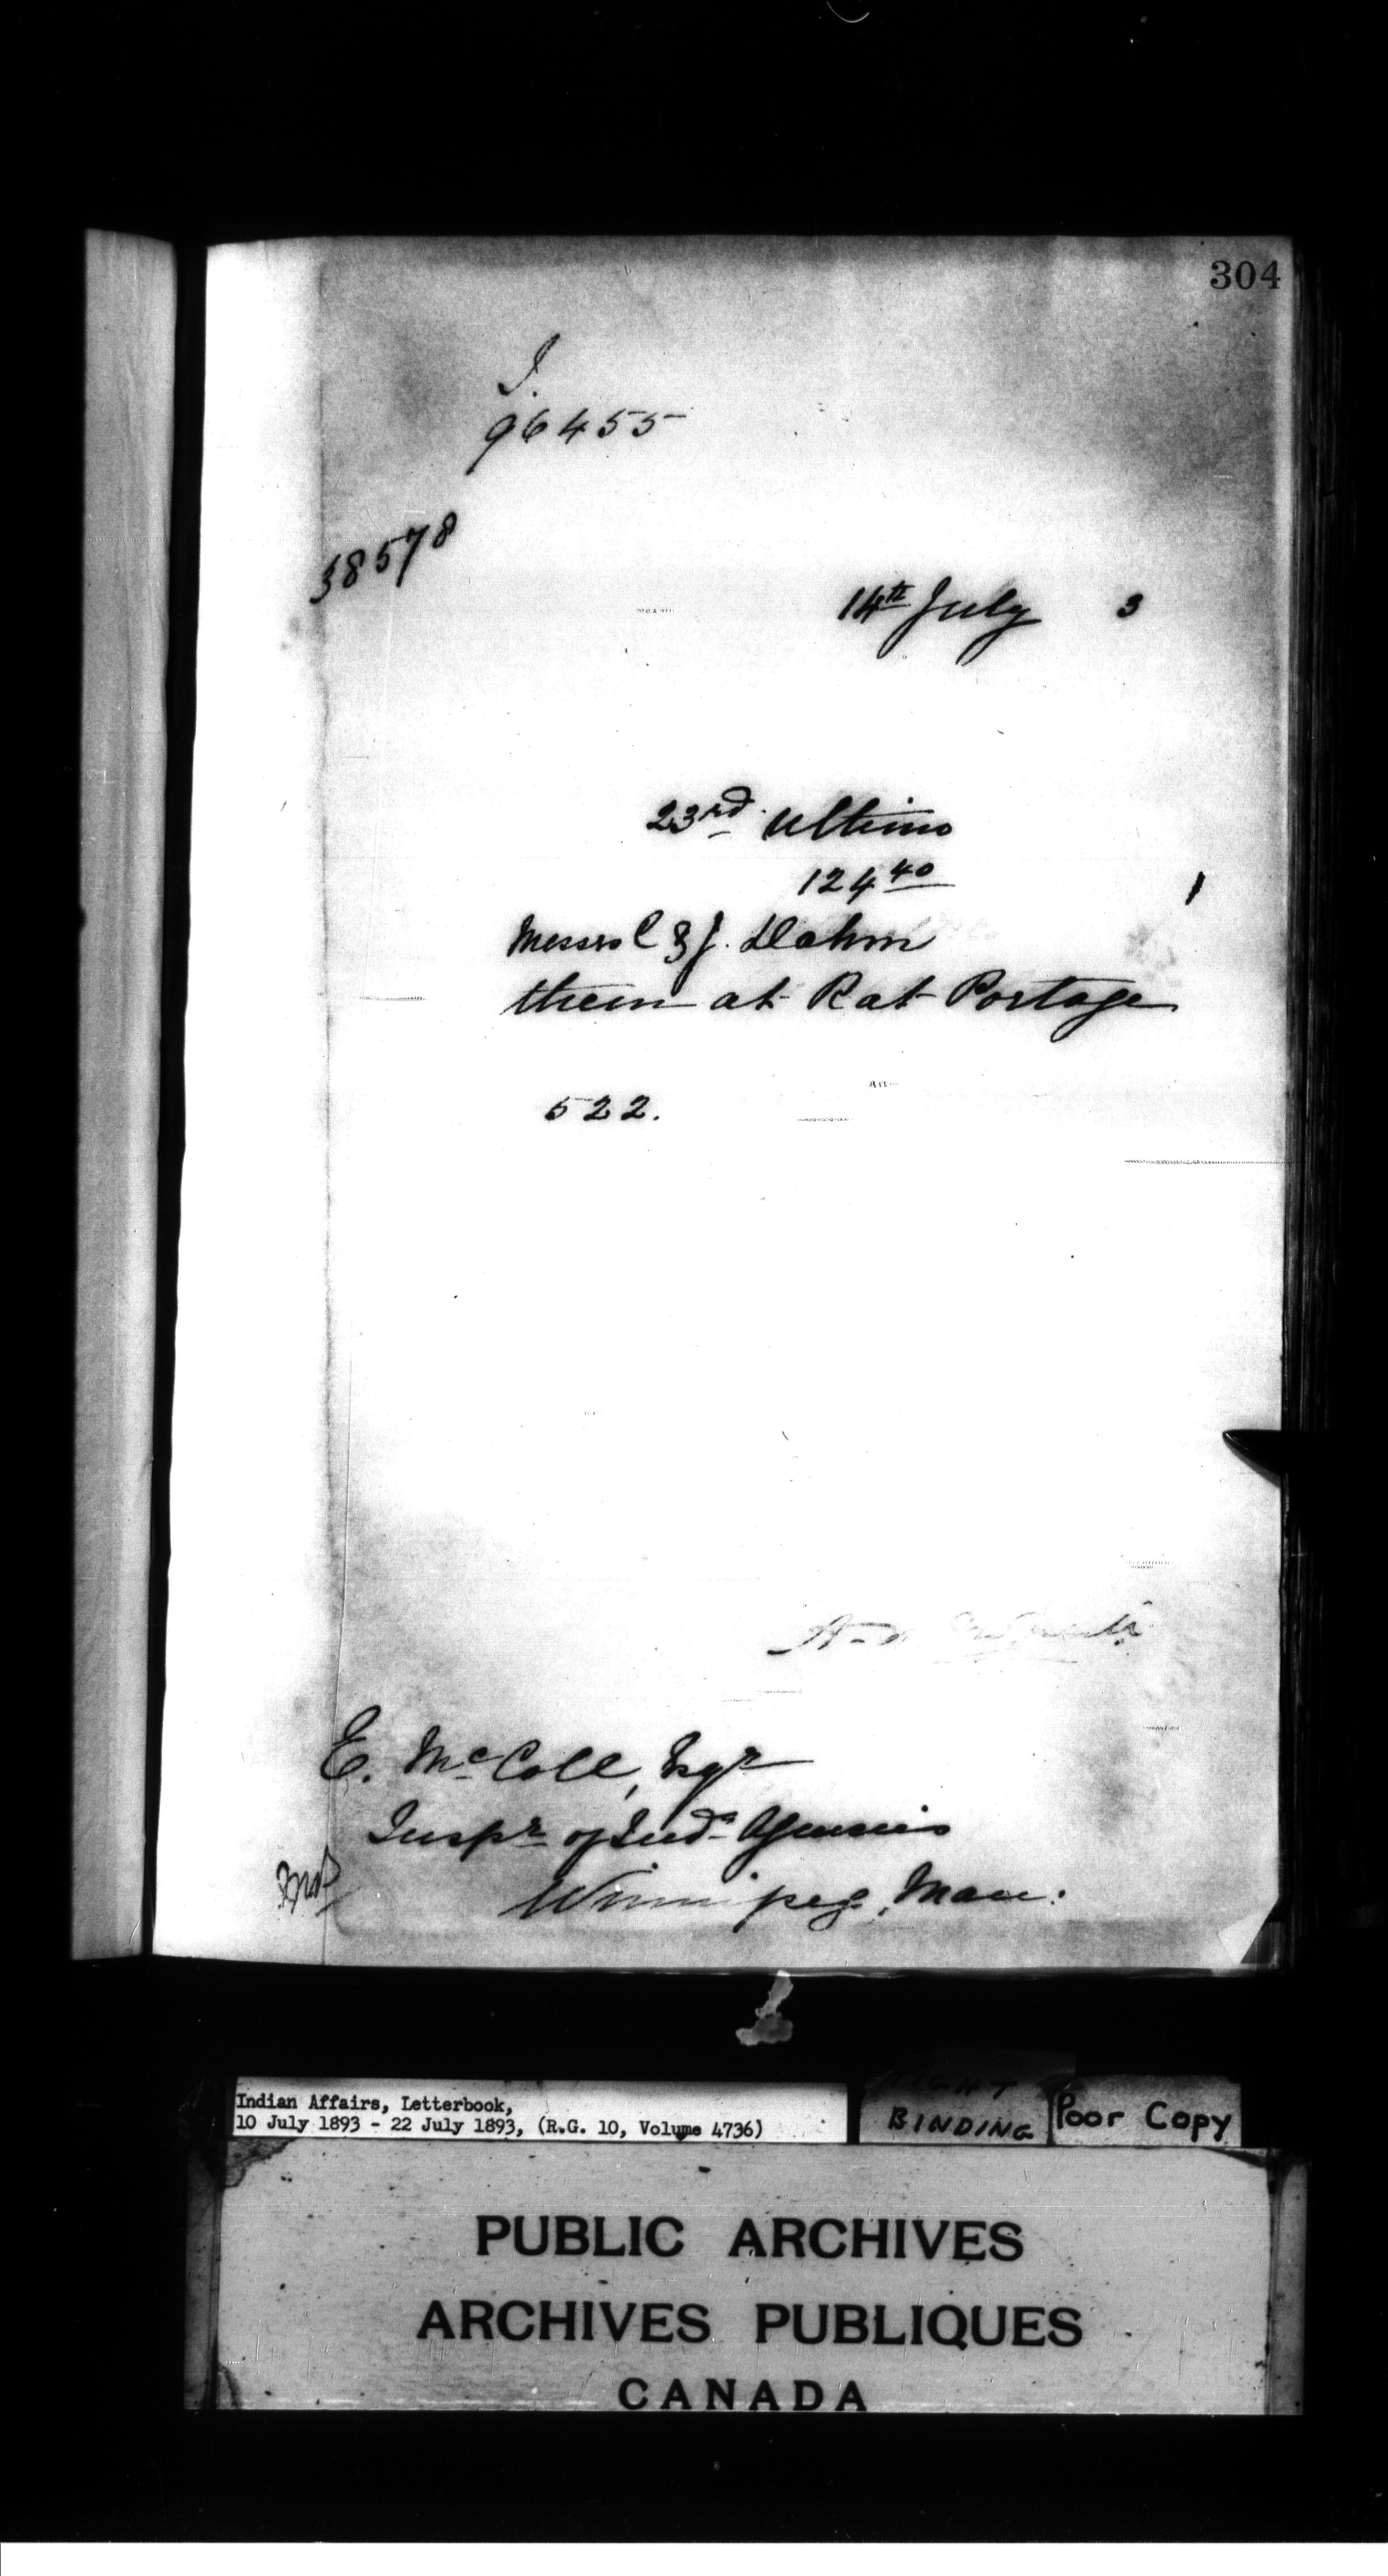 304
I.
96455
38578
14th July 3
23rd Ultimo
124 40
1
Messrs C & J.
them at Rat Portage
522.
E. McColl, Esqr
Inspr of Inda Agencies
Winnipeg, Man:
Indian Affairs, Letterbook,
10 July 1893 - 22 July 1893, (R.G. 10, Volume 4736)
TIGHT
BINDING
Poor Copy
PUBLIC ARCHIVES
ARCHIVES PUBLIQUES
CANADA